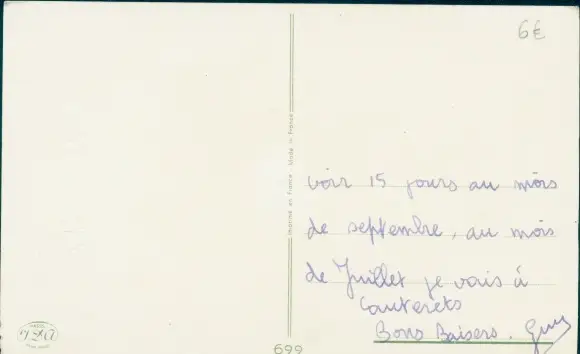 6€
voir 15 jours au mois
de septembre, au mois
de Juillet je vais à
Cauterets
Bons Baisers. Guy
Imprimé en France Made in France
699